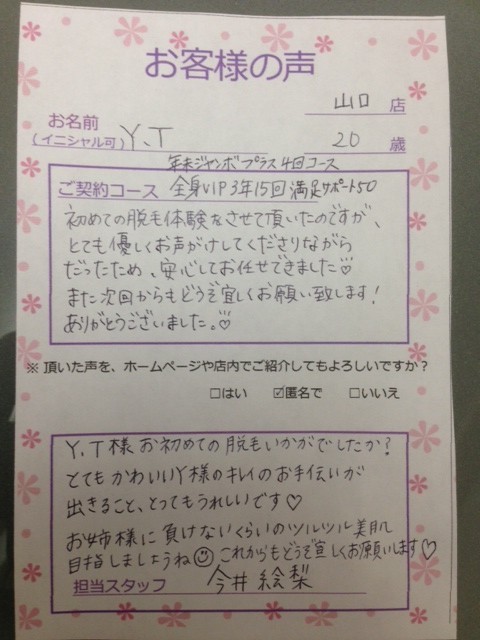 お客様の声
山口 店
お名前
(イニシャル可) Y.T 20 歳
年末ジャンボプラス4回コース
ご契約コース 全身VIP3年15回満足サポート50
初めての脱毛体験をさせて頂いたのですが、
とても優しくお声がけしてくださりながら
だったため、安心してお任せできました♡
また次回からもどうぞ宜しくお願い致します!
ありがとうございました。♡
※頂いた声を、ホームページや店内でご紹介してもよろしいですか?
□はい ☑匿名で □いいえ
Y.T様お初めての脱毛いかがでしたか?
とてもかわいいY様のキレイのお手伝いが
出きること、とってもうれしいです♡
お姉様に負けないくらいのツルツル美肌
目指しましょうね☺これからもどうぞ宜しくお願いします♡
担当スタッフ 今井絵梨